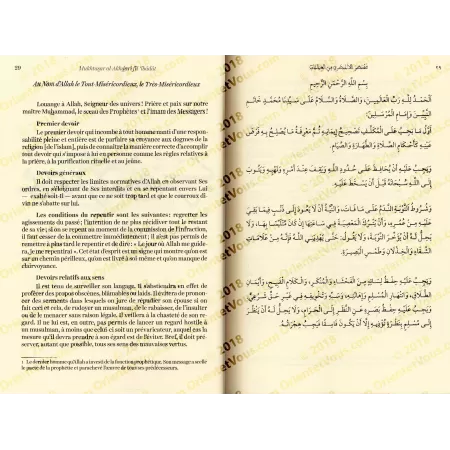 20
Mukhtaṣar al-Akhḍarî fîl 'Ibâdât
Au Nom d'Allah le Tout-Miséricordieux, le Très-Miséricordieux
Louange à Allah, Seigneur des univers ! Prière et paix sur notre
maître Muḥammad, le sceau des Prophètes¹ et l'imam des Messagers !
Premier devoir
Le premier devoir qui incombe à tout homme muni d'une responsabilité
pleine et entière est de parfaire sa croyance aux dogmes de la
religion [de l'islam], puis de connaître la manière correcte d'accomplir
tout devoir qui s'impose à lui en personne comme les règles relatives à
la prière, à la purification rituelle et au jeûne.
Devoirs généraux
Il doit respecter les limites normatives d'Allah en observant Ses
ordres, en s'éloignant de Ses interdits et en se repentant envers Lui
– exalté soit-Il – avant que ce ne soit trop tard et que le courroux divin
ne s'abatte sur lui.
Les conditions du repentir sont les suivantes : regretter les
agissements du passé ; l'intention de ne plus récidiver tout le restant de
sa vie ; si on se repent au moment de la commission de l'infraction,
il faut cesser de la commettre immédiatement ; il n'est pas permis de
remettre à plus tard le repentir et de dire : « Le jour où Allah me guidera,
je me repentirai ». Cet état d'esprit est un signe qui montre qu'on est
sur un chemin périlleux, qu'on est livré à soi même et qu'on manque de
clairvoyance.
Devoirs relatifs aux sens
Il est tenu de surveiller son langage. Il s'abstiendra en effet de
proférer des propos obscènes, blâmables, déplacés, de même que de prononcer
des serments dans lesquels on jure de répudier son épouse si on
fait ceci et cela, de rudoyer un musulman, de le rabaisser, de l'insulter
ou de le menacer sans raison légale. Il veillera à la chasteté de son regard.
Il ne lui est, en outre, pas permis de lancer un regard hostile à
un musulman, à moins que celui-ci soit un prévaricateur, auquel cas la
mesure qu'il devra prendre à son égard est de l'éviter. Bref, il doit préserver,
autant que possible, tous ses sens des mauvaises vertus.
1 Le dernier homme qu'Allah a investi de la fonction prophétique. Son message a scellé
le pacte de la prophétie et parachevé l'œuvre de tous ses prédécesseurs.
مُخْتَصَرُ الأَخْضَرِي فِي العِبَادَاتِ
٢١
بِسْمِ اللهِ الرَّحْمَنِ الرَّحِيمِ
الحَمْدُ لِلَّهِ رَبِّ العَالَمِينَ، وَالصَّلَاةُ وَالسَّلَامُ عَلَى سَيِّدِنَا مُحَمَّدٍ خَاتَمِ
النَّبِيِّينَ وَإِمَامِ المُرْسَلِينَ.
أَوَّلُ مَا يَجِبُ عَلَى المُكَلَّفِ تَصْحِيحُ إِيمَانِهِ ثُمَّ مَعْرِفَةُ مَا يُصْلِحُ بِهِ فَرْضَ
عَيْنِهِ كَأَحْكَامِ الصَّلَاةِ وَالطَّهَارَةِ وَالصِّيَامِ.
وَيَجِبُ عَلَيْهِ أَنْ يُحَافِظَ عَلَى حُدُودِ اللهِ وَيَقِفَ عِنْدَ أَمْرِهِ وَنَهْيِهِ وَيَتُوبَ
إِلَى اللهِ سُبْحَانَهُ قَبْلَ أَنْ يَسْخَطَ عَلَيْهِ.
وَشُرُوطُ التَّوْبَةِ النَّدَمُ عَلَى مَا فَاتَ، وَالنِّيَّةُ أَنْ لَا يَعُودَ إِلَى ذَنْبٍ فِيمَا بَقِيَ
عَلَيْهِ مِنْ عُمُرِهِ، وَأَنْ يَتْرُكَ المَعْصِيَةَ فِي سَاعَتِهَا إِنْ كَانَ مُتَلَبِّسًا بِهَا، وَلَا
يَحِلُّ لَهُ أَنْ يُؤَخِّرَ التَّوْبَةَ، وَلَا يَقُولَ: حَتَّى يَهْدِيَنِي اللهُ، فَإِنَّهُ مِنْ عَلَامَاتِ
الشَّقَاءِ وَالخِذْلَانِ وَطَمْسِ البَصِيرَةِ.
وَيَجِبُ عَلَيْهِ حِفْظُ لِسَانِهِ مِنَ الفَحْشَاءِ وَالمُنْكَرِ، وَالكَلَامِ القَبِيحِ، وَأَيْمَانِ
الطَّلَاقِ، وَانْتِهَارِ المُسْلِمِ وَإِهَانَتِهِ، وَسَبِّهِ وَتَخْوِيفِهِ فِي غَيْرِ حَقٍّ شَرْعِيٍّ.
وَيَجِبُ عَلَيْهِ حِفْظُ بَصَرِهِ عَنِ النَّظَرِ إِلَى الحَرَامِ، وَلَا يَحِلُّ لَهُ أَنْ يَنْظُرَ
إِلَى مُسْلِمٍ بِنَظْرَةٍ تُؤْذِيهِ، إِلَّا أَنْ يَكُونَ فَاسِقًا فَيَجِبُ هِجْرَانُهُ